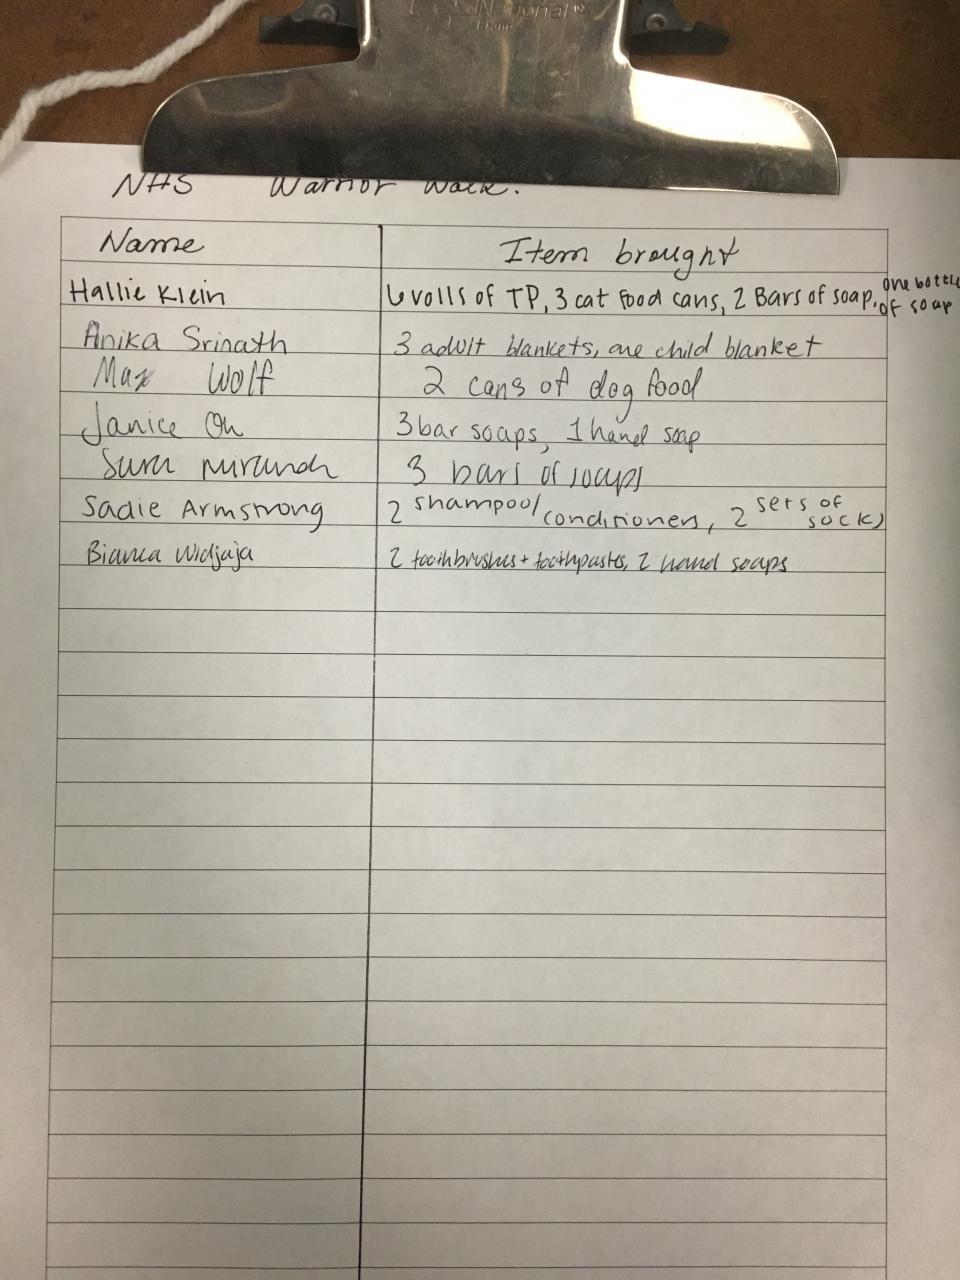 National
NHS Warrior Walk.
Name Item brought
Hallie Klein 6 rolls of TP, 3 cat food cans, 2 Bars of soap, one bottle of soap
Anika Srinath 3 adult blankets, one child blanket
Max Wolf 2 cans of dog food
Janice Oh 3 bar soaps, 1 hand soap
3 bars of soaps
Sadie Armstrong 2 shampoo/conditioners, 2 sets of socks
Bianca Widjaja 2 toothbrushes + toothpastes, 2 hand soaps